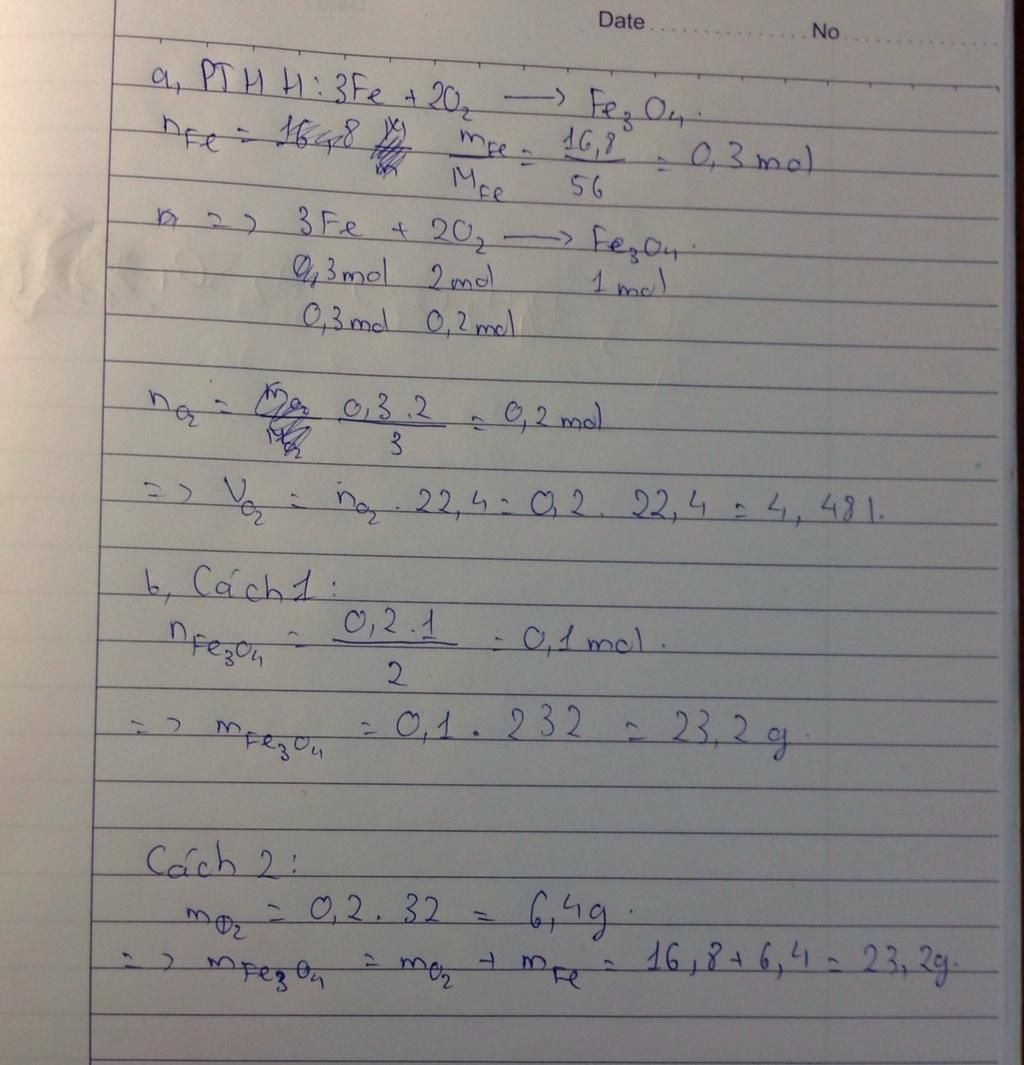 Date.................No.....................
a, PTHH: 3Fe + 2O₂ ⟶ Fe₃O₄.
n_Fe = m_Fe/M_Fe = 16,8/56 = 0,3 mol
=> 3Fe + 2O₂ ⟶ Fe₃O₄.
0,3mol 2mol 1mol
0,3mol 0,2mol
n_O₂ = 0,3.2/3 = 0,2 mol
=> V_O₂ = n_O₂ . 22,4 = 0,2. 22,4 = 4,48l.
b, Cách 1:
n_Fe₃O₄ = 0,2.1/2 = 0,1 mol.
=> m_Fe₃O₄ = 0,1. 232 = 23,2 g.
Cách 2:
m_O₂ = 0,2. 32 = 6,4g.
=> m_Fe₃O₄ = m_O₂ + m_Fe = 16,8 + 6,4 = 23,2g.